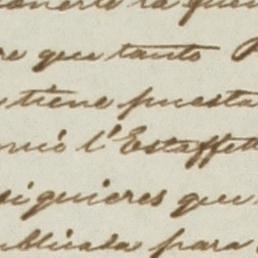 que tanto
tiene puesta
l'Estaffett
siquieres que
ublicada para